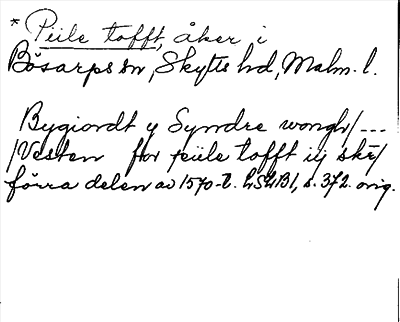 * Piile tofft, åker i
Bösarps sn, Skytts hd, Malm. l.
Bygiordt y Syndre wongh/---
/Vesten for piile tofft iij skr/
förra delen av 1570-t. LSLB1, s. 372. orig.